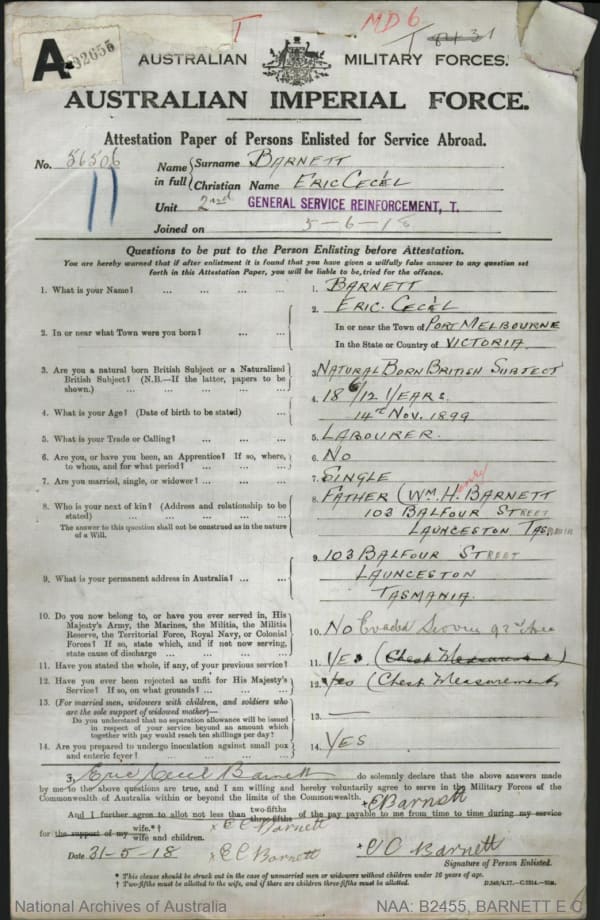 T
MD6
A.
92655
AUSTRALIAN MILITARY FORCES.
AUSTRALIAN IMPERIAL FORCE.
Attestation Paper of Persons Enlisted for Service Abroad.
No. 56506
Name in full { Surname BARNETT
Christian Name ERIC CECIL
11
Unit 2nd GENERAL SERVICE REINFORCEMENT, T.
Joined on 5-6-18
Questions to be put to the Person Enlisting before Attestation.
You are hereby warned that if after enlistment it is found that you have given a wilfully false answer to any question set
forth in this Attestation Paper, you will be liable to be tried for the offence.
1. What is your Name? ... ... ... ... 1. BARNETT
ERIC. CECIL
2. In or near what Town were you born? ... ... 2. In or near the Town of PORT MELBOURNE
In the State or Country of VICTORIA.
3. Are you a natural born British Subject or a Naturalized
British Subject? (N.B.—If the latter, papers to be
shown.) ... ... ... ... 3. NATURAL BORN BRITISH SUBJECT
4. What is your Age? (Date of birth to be stated) ... 4. 18 6/12 YEARS.
14th NOV. 1899
5. What is your Trade or Calling? ... ... ... 5. LABOURER.
6. Are you, or have you been, an Apprentice? If so, where,
to whom, and for what period? ... ... ... 6. NO
7. Are you married, single, or widower? ... ... 7. SINGLE
8. Who is your next of kin? (Address and relationship to be
stated) ... ... ... ... ...
The answer to this question shall not be construed as in the nature
of a Will.
8. FATHER (WM. H. BARNETT
Henry
103 BALFOUR STREET
LAUNCESTON TASMANIA
9. What is your permanent address in Australia? ... ... 9. 103 BALFOUR STREET
LAUNCESTON
TASMANIA.
10. Do you now belong to, or have you ever served in, His
Majesty's Army, the Marines, the Militia, the Militia
Reserve, the Territorial Force, Royal Navy, or Colonial
Forces? If so, state which, and if not now serving,
state cause of discharge ... ... ... 10. NO
11. Have you stated the whole, if any, of your previous service? 11. YES (Chest Measurement)
12. Have you ever been rejected as unfit for His Majesty's
Service? If so, on what grounds? ... ... 12. Yes (Chest Measurement
13. (For married men, widowers with children, and soldiers who
are the sole support of widowed mother)—
Do you understand that no separation allowance will be issued
in respect of your service beyond an amount which
together with pay would reach ten shillings per day? 13. —
14. Are you prepared to undergo inoculation against small pox
and enteric fever? ... ... ... ... 14. YES
I, Eric Cecil Barnett do solemnly declare that the above answers made
by me to the above questions are true, and I am willing and hereby voluntarily agree to serve in the Military Forces of the
Commonwealth of Australia within or beyond the limits of the Commonwealth.
+ E C Barnett
And I further agree to allot not less than two-fifths three-fifths of the pay payable to me from time to time during my service
for the support of my wife.*† wife and children.
x E C Barnett
Date 31-5-18 x E C Barnett + E C Barnett
Signature of Person Enlisted.
* This clause should be struck out in the case of unmarried men or widowers without children under 16 years of age.
† Two-fifths must be allotted to the wife, and if there are children three-fifths must be allotted.
National Archives of Australia
NAA: B2455, BARNETT E C